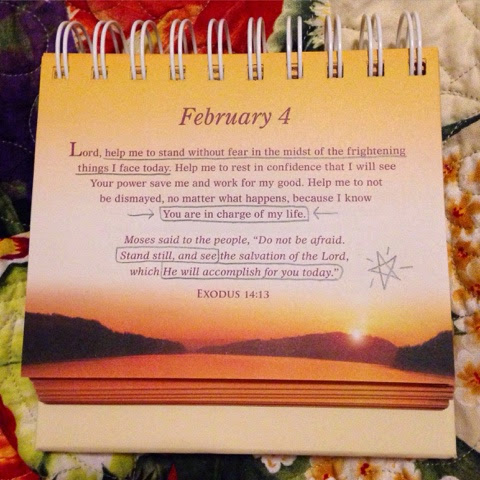 February 4
Lord, help me to stand without fear in the midst of the frightening
things I face today. Help me to rest in confidence that I will see
Your power save me and work for my good. Help me to not
be dismayed, no matter what happens, because I know
You are in charge of my life.
Moses said to the people, “Do not be afraid.
Stand still, and see the salvation of the Lord,
which He will accomplish for you today.”
Exodus 14:13